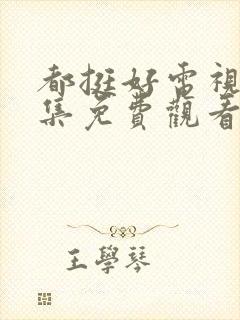 都挺好電視
集免費觀看
王學琴